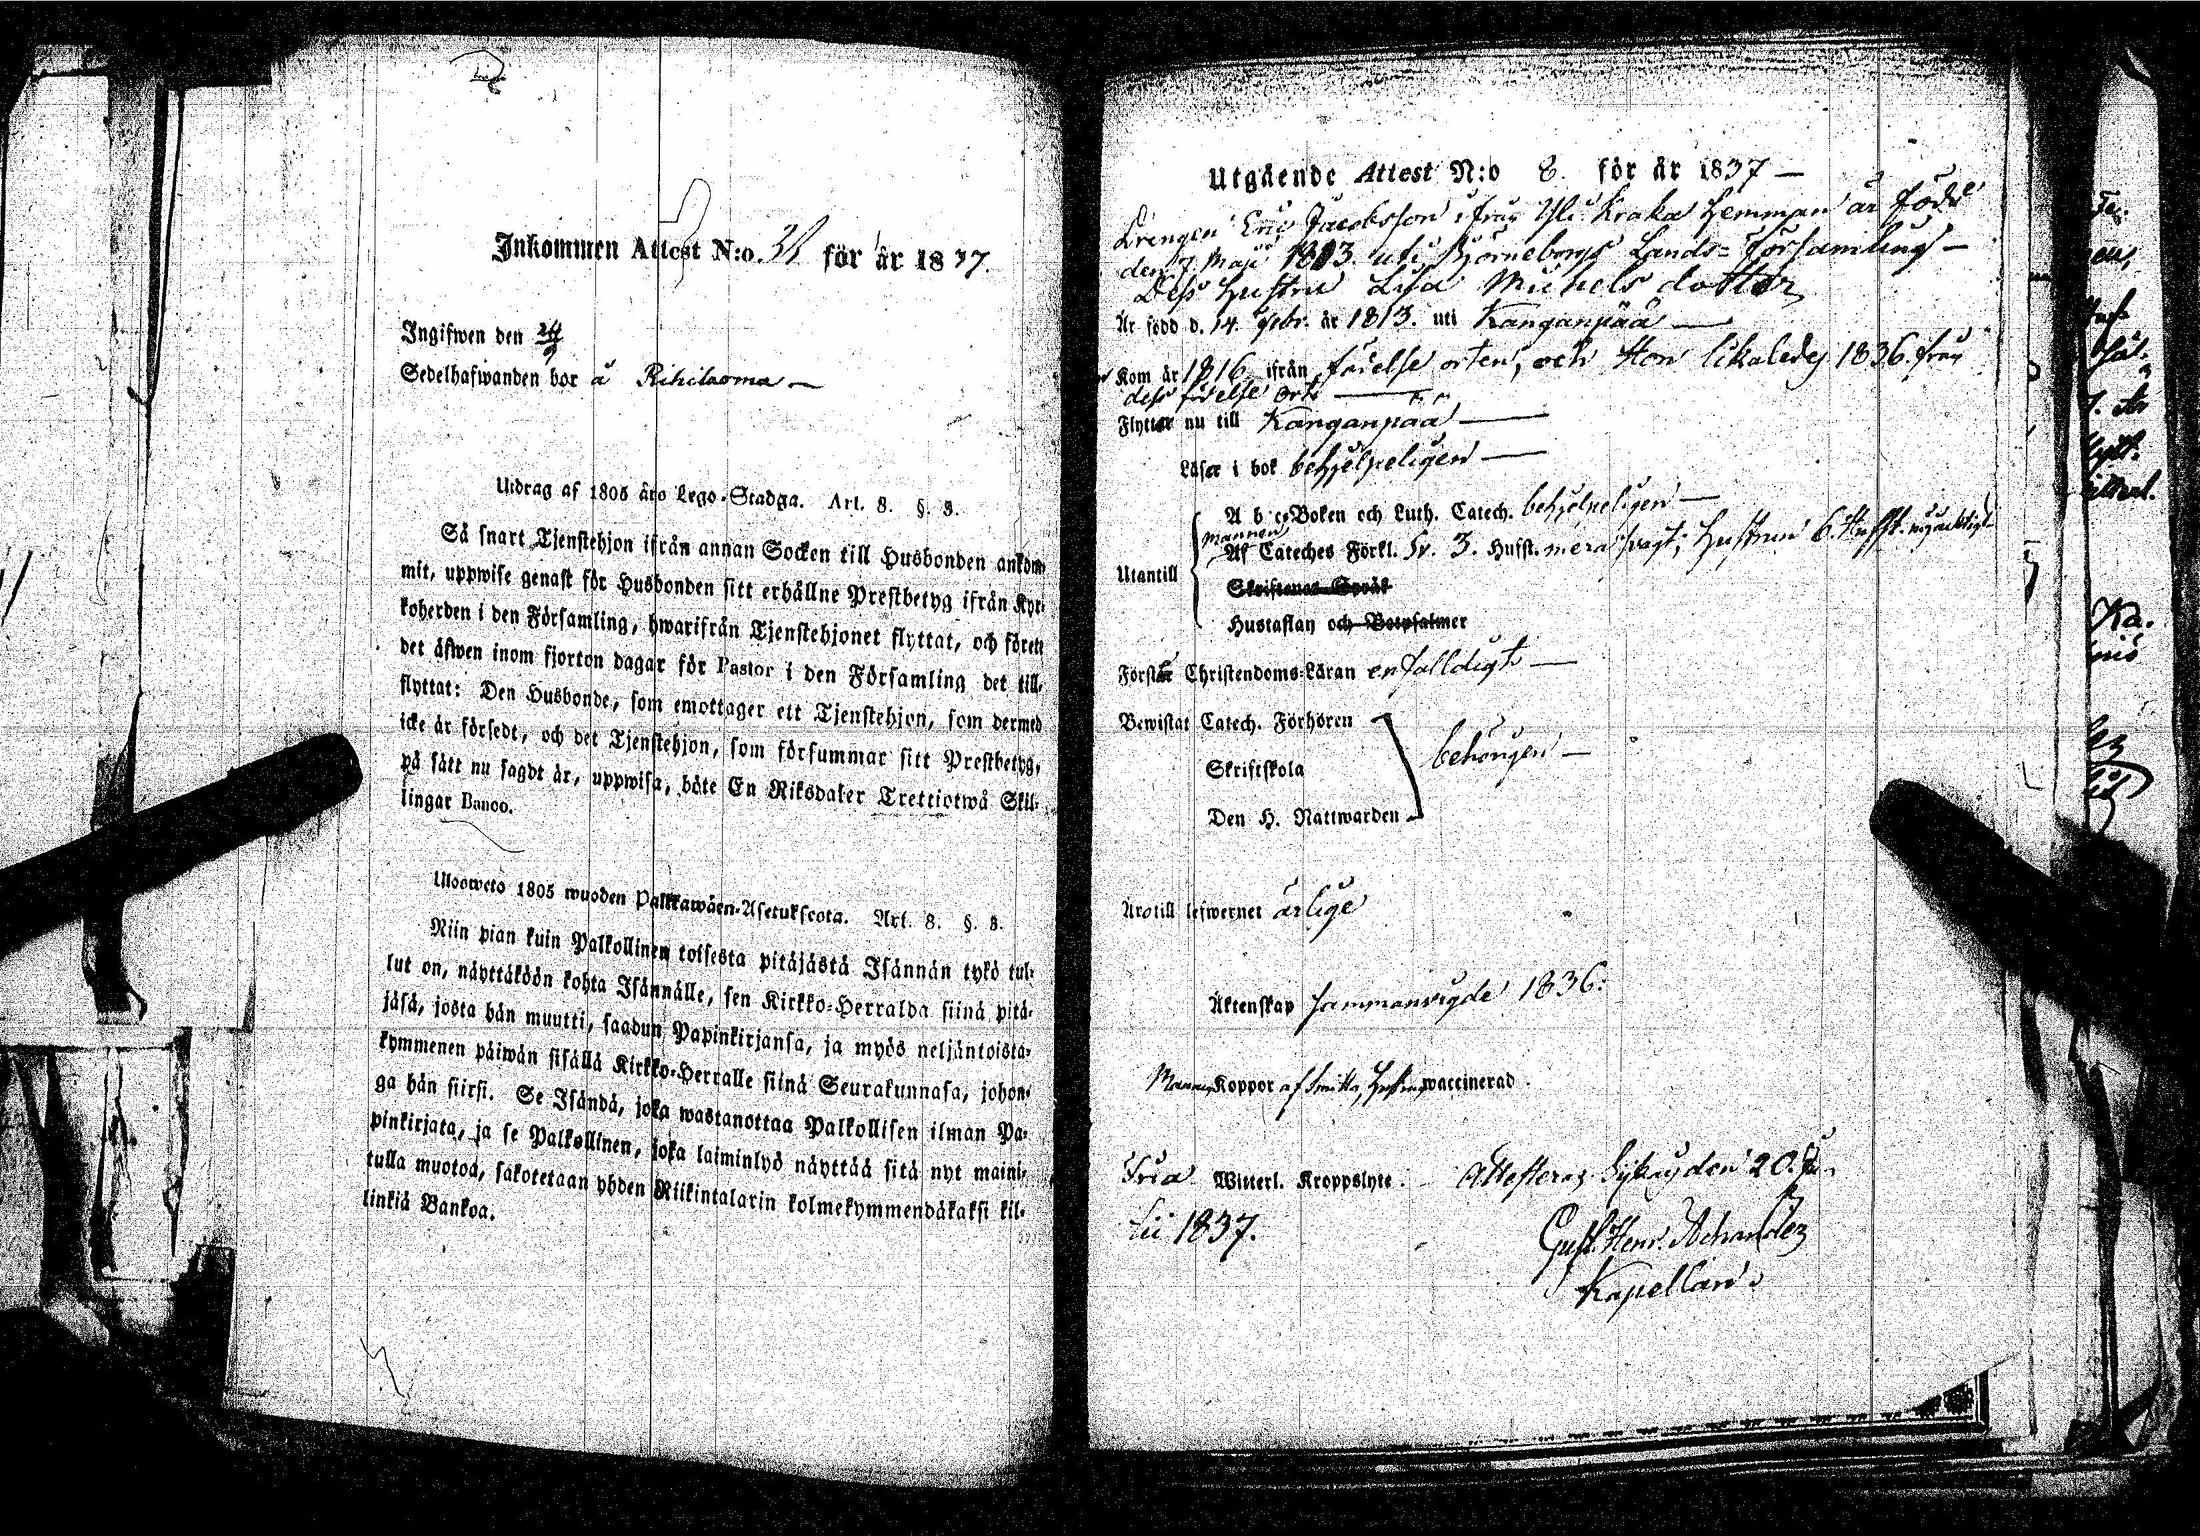 Inkommen Attest N:o. 38 för år 1837.
Ingifwen den 24/9
Sedelhafwanden bor å Rihilaoma
Utdrag af 1805 års Lego-Stadga. Art. 8. §. 3.
Så snart Tjenstehjon ifrån annan Socken till Husbonden ankom-
mit, uppwise genast för Husbonden sitt erhållne Prestbetyg ifrån Kyr-
koherden i den Församling, hwarifrån Tjenstehjonet flyttat, och förete
det äfwen inom fjorton dagar för Pastor i den Församling det till-
flyttat: Den Husbonde, som emottager ett Tjenstehjon, som dermed
icke är försedt, och det Tjenstehjon, som försummar sitt Prestbetyg,
på sätt nu sagdt är, uppwisa, böte En Riksdaler Trettiotwå Skil-
lingar Banco.
Ulosweto 1805 wuoden Palkkawäen-Asetuksesta. Art. 8. §. 3.
Niin pian kuin Palkollinen toisesta pitäjästä Isännän tykö tul-
lut on, näyttäköön kohta Isännälle, sen Kirkko-Herralda siinä pitä-
jäsä, josta hän muutti, saadun Papinkirjansa, ja myös neljäntoista-
kymmenen päiwän sisällä Kirkko-Herralle siinä Seurakunnasa, johon-
ga hän siirsi. Se Isändä, joka wastanottaa Palkollisen ilman Pa-
pinkirjata, ja se Palkollinen, joka laiminlyö näyttää sitä nyt maini-
tulla muotoa, sakotetaan yhden Riikintalarin kolmekymmendäkaksi kil-
linkiä Bankoa.
Utgående Attest N:o 8. för år 1837
Drengen Eric Jacobsson ifrån Yli Kraka Hemman är född
den 7. Maji 1813 uti Björneborgs Lands-Församling
Dess Hustru Lisa Michels dotter
Är född d. 14. Febr. år 1813. uti Kanganpää
Kom år 1816 ifrån födelse orten, och Hon likaledes 1836. från
dess födelse ort
Flyttar nu till Kanganpää
Läser i bok behjelpeligen
A b c Boken och Luth. Catech. behjelpeligen
mannen
Utantill Af Cateches Förkl. Sv. 3. Hufst. mera svagt; Hustrun 6. Hufst.
Skriftenes Språk
Hustaflan och Botpsalmer
Förstår Christendoms-Läran enfalldigt
Bewistat Catech. Förhören
Skriftskola behörigen
Den H. Nattwarden
Äro till lefwernet ärlige
Äktenskap sammanvigde 1836.
Mannen Koppor af Smitta, Hustrun waccinerad.
Fria Witterl. Kroppslyte. Attesteras den 20. Ju-
lii 1837.
Gust. Henr.
Kapellan.